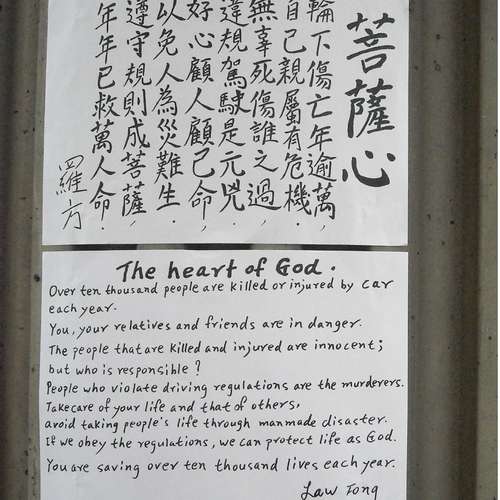 菩薩心
輪下傷亡年逾萬,
自己親屬有危機.
無辜死傷誰之過,
違規駕駛是元兇.
好心顧人顧己命,
以免人為災難生.
遵守規則成菩薩,
年年已救萬人命.
羅方
The heart of God.
Over ten thousand people are killed or injured by car
each year.
You, your relatives and friends are in danger.
The people that are killed and injured are innocent;
but who is responsible?
People who violate driving regulations are the murderers.
Takecare of your life and that of others,
avoid taking people's life through manmade disaster.
If we obey the regulations, we can protect life as God.
You are saving over ten thousand lives each year.
Law Fong